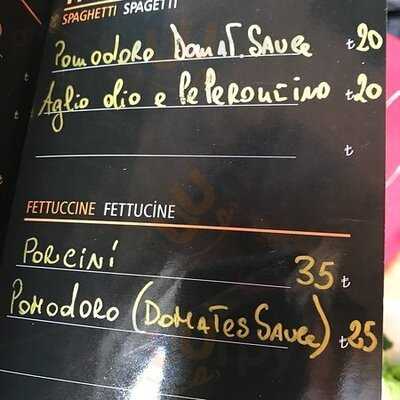 SPAGHETTI SPAGETTİ
Pomodoro Domat. Sauce ₺20
Aglio olio e Peperoncino ₺20
₺
FETTUCCINE FETTUCİNE
PORCiNi 35 ₺
POMODORO (DOMATES Sauce) ₺25